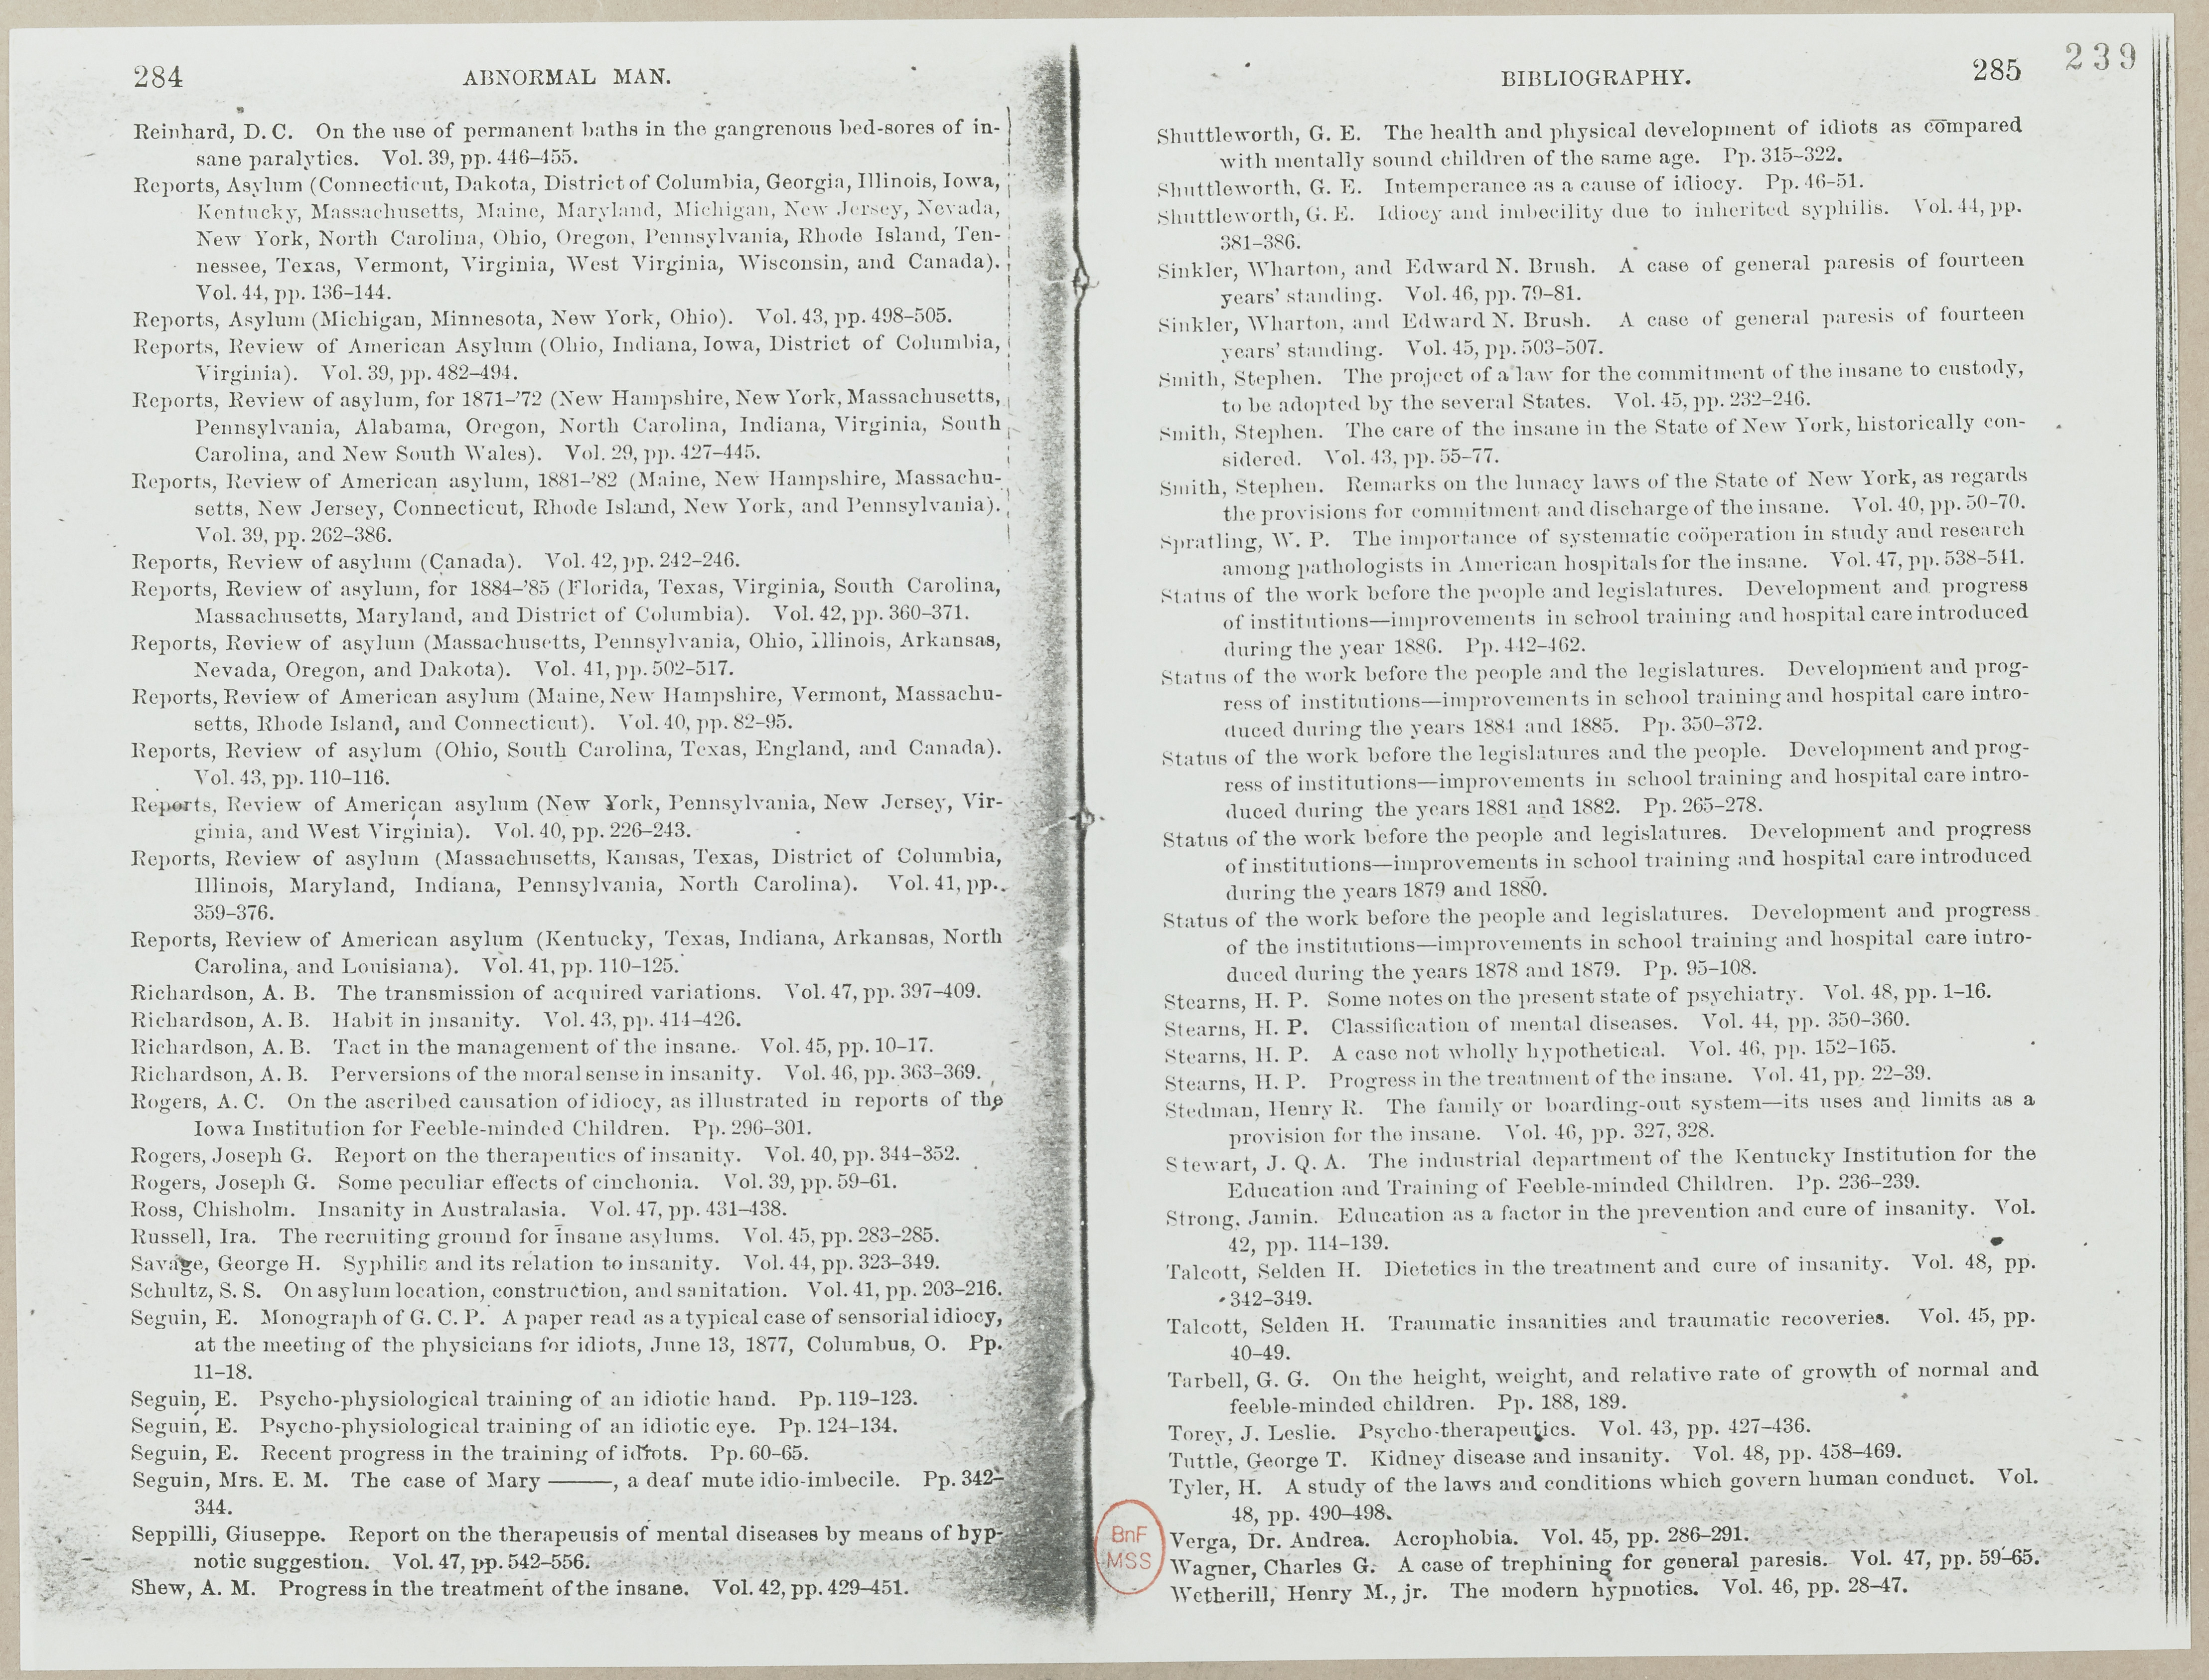 284 ABNORMAL MAN.
Reinhard, D. C. On the use of permanent baths in the gangrenous bed-sores of in-
sane paralytics. Vol. 39, pp. 446–455.
Reports, Asylum (Connecticut, Dakota, District of Columbia, Georgia, Illinois, Iowa,
Kentucky, Massachusetts, Maine, Maryland, Michigan, New Jersey, Nevada,
New York, North Carolina, Ohio, Oregon, Pennsylvania, Rhode Island, Ten-
nessee, Texas, Vermont, Virginia, West Virginia, Wisconsin, and Canada).
Vol. 44, pp. 136–144.
Reports, Asylum (Michigan, Minnesota, New York, Ohio). Vol. 43, pp. 498–505.
Reports, Review of American Asylum (Ohio, Indiana, Iowa, District of Columbia,
Virginia). Vol. 39, pp. 482–494.
Reports, Review of asylum, for 1871–'72 (New Hampshire, New York, Massachusetts,
Pennsylvania, Alabama, Oregon, North Carolina, Indiana, Virginia, South
Carolina, and New South Wales). Vol. 29, pp. 427–445.
Reports, Review of American asylum, 1881–'82 (Maine, New Hampshire, Massachu-
setts, New Jersey, Connecticut, Rhode Island, New York, and Pennsylvania).
Vol. 39, pp. 262–386.
Reports, Review of asylum (Canada). Vol. 42, pp. 242–246.
Reports, Review of asylum, for 1884–'85 (Florida, Texas, Virginia, South Carolina,
Massachusetts, Maryland, and District of Columbia). Vol. 42, pp. 360–371.
Reports, Review of asylum (Massachusetts, Pennsylvania, Ohio, Illinois, Arkansas,
Nevada, Oregon, and Dakota). Vol. 41, pp. 502–517.
Reports, Review of American asylum (Maine, New Hampshire, Vermont, Massachu-
setts, Rhode Island, and Connecticut). Vol. 40, pp. 82–95.
Reports, Review of asylum (Ohio, South Carolina, Texas, England, and Canada).
Vol. 43, pp. 110–116.
Reports, Review of American asylum (New York, Pennsylvania, New Jersey, Vir-
ginia, and West Virginia). Vol. 40, pp. 226–243.
Reports, Review of asylum (Massachusetts, Kansas, Texas, District of Columbia,
Illinois, Maryland, Indiana, Pennsylvania, North Carolina). Vol. 41, pp.
359–376.
Reports, Review of American asylum (Kentucky, Texas, Indiana, Arkansas, North
Carolina, and Louisiana). Vol. 41, pp. 110–125.
Richardson, A. B. The transmission of acquired variations. Vol. 47, pp. 397–409.
Richardson, A. B. Habit in insanity. Vol. 43, pp. 414–426.
Richardson, A. B. Tact in the management of the insane. Vol. 45, pp. 10–17.
Richardson, A. B. Perversions of the moral sense in insanity. Vol. 46, pp. 363–369.
Rogers, A. C. On the ascribed causation of idiocy, as illustrated in reports of the
Iowa Institution for Feeble-minded Children. Pp. 296–301.
Rogers, Joseph G. Report on the therapeutics of insanity. Vol. 40, pp. 344–352.
Rogers, Joseph G. Some peculiar effects of cinchonia. Vol. 39, pp. 59–61.
Ross, Chisholm. Insanity in Australasia. Vol. 47, pp. 431–438.
Russell, Ira. The recruiting ground for insane asylums. Vol. 45, pp. 283–285.
Savage, George H. Syphilis and its relation to insanity. Vol. 44, pp. 323–349.
Schultz, S. S. On asylum location, construction, and sanitation. Vol. 41, pp. 203–216.
Seguin, E. Monograph of G. C. P. A paper read as a typical case of sensorial idiocy,
at the meeting of the physicians for idiots, June 13, 1877, Columbus, O. Pp.
11–18.
Seguin, E. Psycho-physiological training of an idiotic hand. Pp. 119–123.
Seguin, E. Psycho-physiological training of an idiotic eye. Pp. 124–134.
Seguin, E. Recent progress in the training of idiots. Pp. 60–65.
Seguin, Mrs. E. M. The case of Mary ———, a deaf mute idio-imbecile. Pp. 342–
344.
Seppilli, Giuseppe. Report on the therapeusis of mental diseases by means of hyp-
notic suggestion. Vol. 47, pp. 542–556.
Shew, A. M. Progress in the treatment of the insane. Vol. 42, pp. 429–451.
BIBLIOGRAPHY. 285 239
Shuttleworth, G. E. The health and physical development of idiots as compared
with mentally sound children of the same age. Pp. 315–322.
Shuttleworth, G. E. Intemperance as a cause of idiocy. Pp. 46–51.
Shuttleworth, G. E. Idiocy and imbecility due to inherited syphilis. Vol. 44, pp.
381–386.
Sinkler, Wharton, and Edward N. Brush. A case of general paresis of fourteen
years' standing. Vol. 46, pp. 79–81.
Sinkler, Wharton, and Edward N. Brush. A case of general paresis of fourteen
years' standing. Vol. 45, pp. 503–507.
Smith, Stephen. The project of a law for the commitment of the insane to custody,
to be adopted by the several States. Vol. 45, pp. 232–246.
Smith, Stephen. The care of the insane in the State of New York, historically con-
sidered. Vol. 43, pp. 55–77.
Smith, Stephen. Remarks on the lunacy laws of the State of New York, as regards
the provisions for commitment and discharge of the insane. Vol. 40, pp. 50–70.
Spratling, W. P. The importance of systematic coöperation in study and research
among pathologists in American hospitals for the insane. Vol. 47, pp. 538–541.
Status of the work before the people and legislatures. Development and progress
of institutions—improvements in school training and hospital care introduced
during the year 1886. Pp. 442–462.
Status of the work before the people and the legislatures. Development and prog-
ress of institutions—improvements in school training and hospital care intro-
duced during the years 1884 and 1885. Pp. 350–372.
Status of the work before the legislatures and the people. Development and prog-
ress of institutions—improvements in school training and hospital care intro-
duced during the years 1881 and 1882. Pp. 265–278.
Status of the work before the people and legislatures. Development and progress
of institutions—improvements in school training and hospital care introduced
during the years 1879 and 1880.
Status of the work before the people and legislatures. Development and progress
of the institutions—improvements in school training and hospital care intro-
duced during the years 1878 and 1879. Pp. 95–108.
Stearns, H. P. Some notes on the present state of psychiatry. Vol. 48, pp. 1–16.
Stearns, H. P. Classification of mental diseases. Vol. 44, pp. 350–360.
Stearns, H. P. A case not wholly hypothetical. Vol. 46, pp. 152–165.
Stearns, H. P. Progress in the treatment of the insane. Vol. 41, pp. 22–39.
Stedman, Henry R. The family or boarding-out system—its uses and limits as a
provision for the insane. Vol. 46, pp. 327, 328.
Stewart, J. Q. A. The industrial department of the Kentucky Institution for the
Education and Training of Feeble-minded Children. Pp. 236–239.
Strong, Jamin. Education as a factor in the prevention and cure of insanity. Vol.
42, pp. 114–139.
Talcott, Selden H. Dietetics in the treatment and cure of insanity. Vol. 48, pp.
342–349.
Talcott, Selden H. Traumatic insanities and traumatic recoveries. Vol. 45, pp.
40–49.
Tarbell, G. G. On the height, weight, and relative rate of growth of normal and
feeble-minded children. Pp. 188, 189.
Torey, J. Leslie. Psycho-therapeutics. Vol. 43, pp. 427–436.
Tuttle, George T. Kidney disease and insanity. Vol. 48, pp. 458–469.
Tyler, H. A study of the laws and conditions which govern human conduct. Vol.
48, pp. 490–498.
Verga, Dr. Andrea. Acrophobia. Vol. 45, pp. 286–291.
Wagner, Charles G. A case of trephining for general paresis. Vol. 47, pp. 59–65.
Wetherill, Henry M., jr. The modern hypnotics. Vol. 46, pp. 28–47.
BnF
MSS